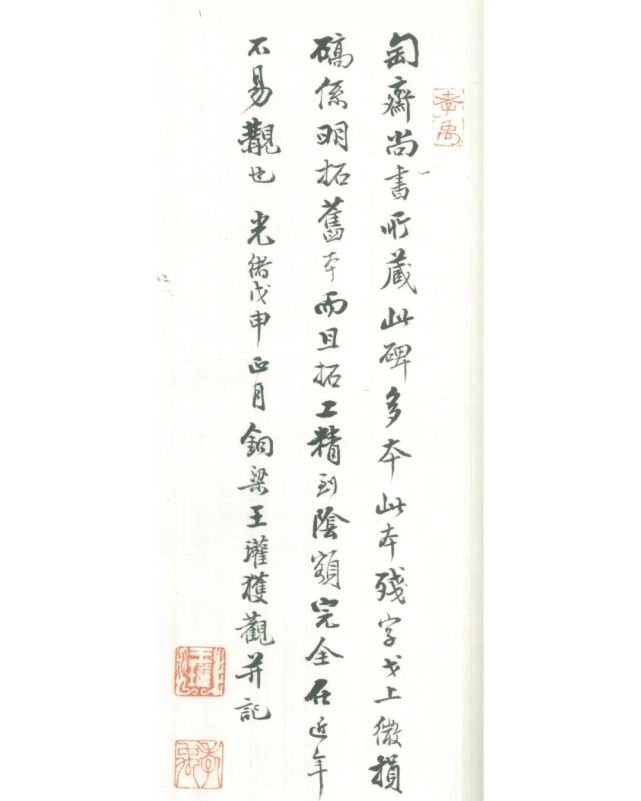 孝禹
匋齋尚書所藏此碑多本此本殘字戈上微損
碻係明拓舊本而且拓工精到陰額完全在近年
不易覯也 光緒戊申正月銅梁王瓘獲觀并記
王瓘
孝禹